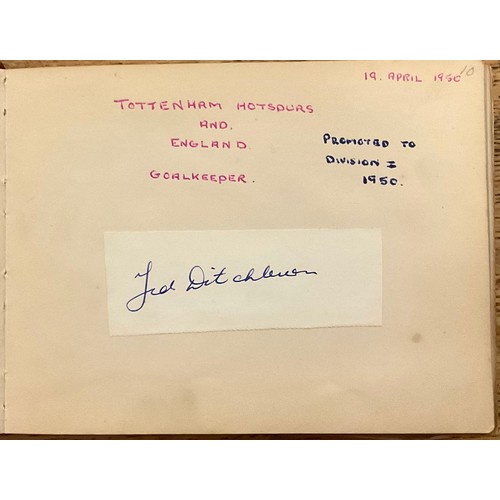 10
19. APRIL 1950
TOTTENHAM HOTSPURS
AND.
ENGLAND.
GOALKEEPER.
PROMOTED TO
DIVISION I
1950.
Ted Ditchburn